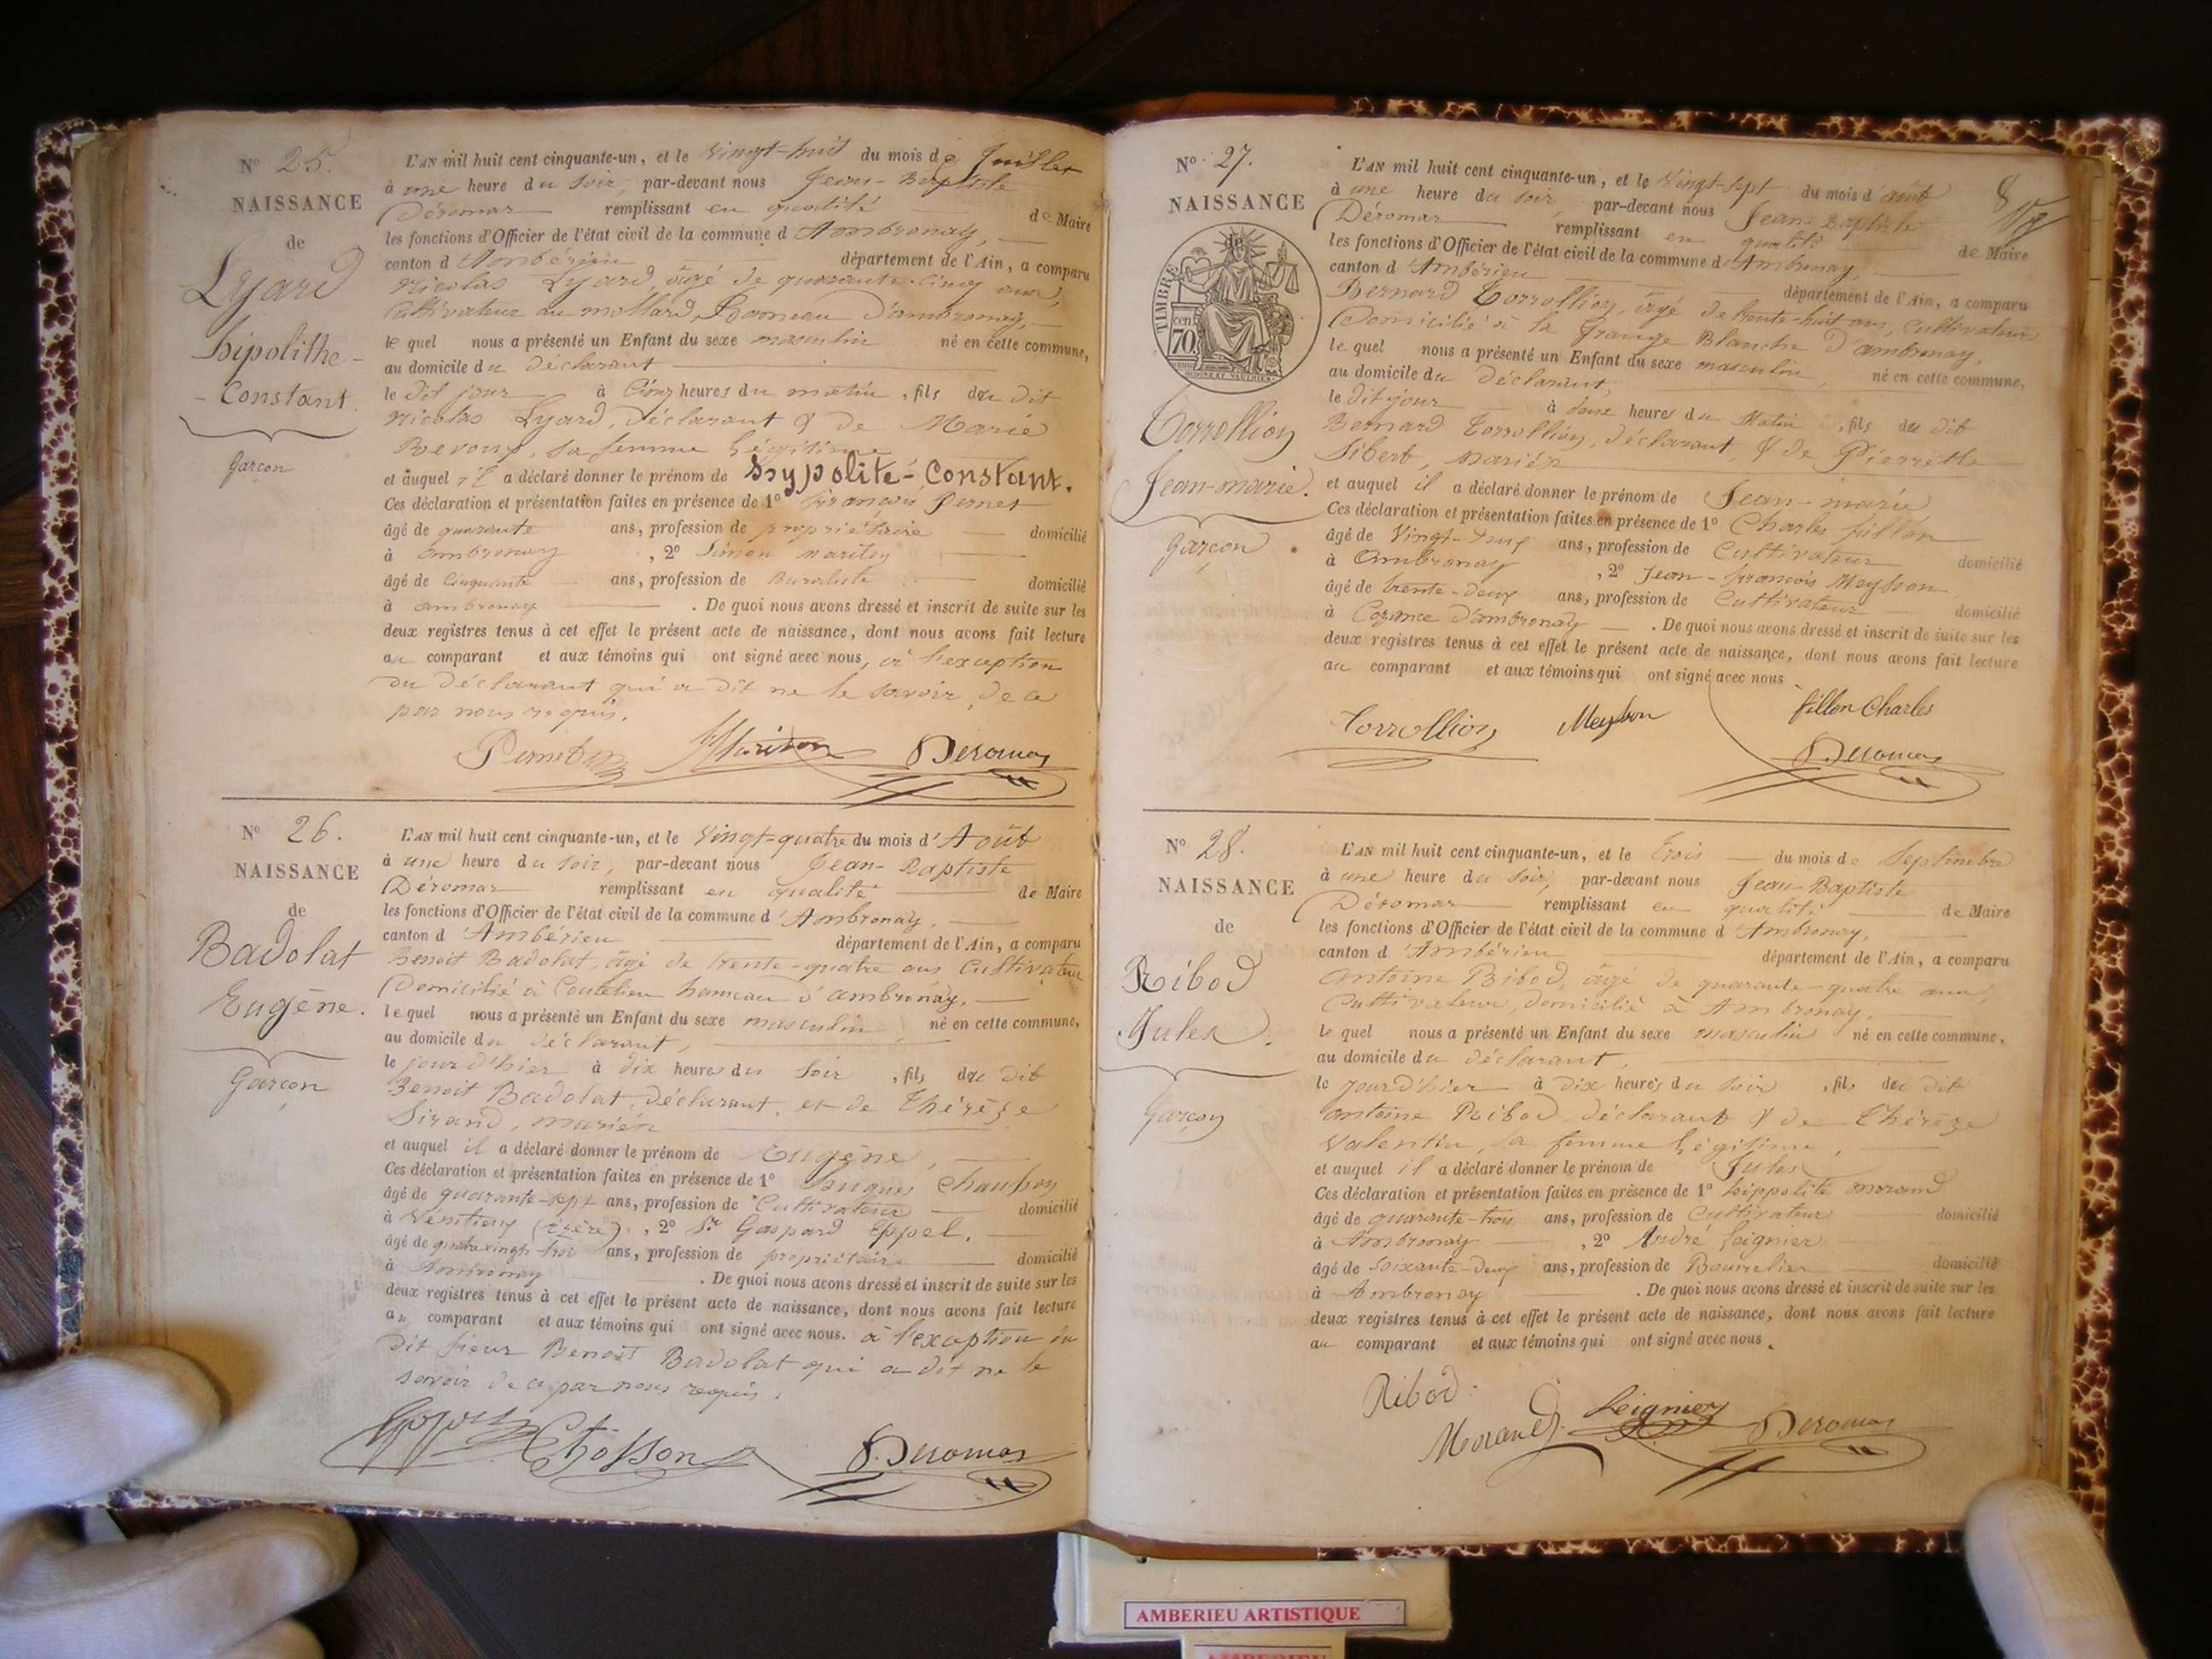 N° 25.
NAISSANCE
de
Lyard
hipolithe-
- Constant.
Garçon
L'AN mil huit cent cinquante-un, et le Vingt-huit du mois de Juillet
à une heure du soir, par-devant nous Jean-Baptiste
Déromas remplissant en qualité de Maire
les fonctions d'Officier de l'état civil de la commune d'Ambronay,
canton d'Ambérieu département de l'Ain, a comparu
Nicolas Lyard, âgé de quarante-cinq ans,
Cultivateur au mollard, hameau d'ambronay,
le quel nous a présenté un Enfant du sexe masculin né en cette commune,
au domicile du déclarant
le dit jour à Cinq heures du matin, fils du dit
Nicolas Lyard, déclarant & de Marie
sa femme légitime
et auquel il a déclaré donner le prénom de hypolite-Constant.
Ces déclaration et présentation faites en présence de 1° françois Pernet
âgé de quarante ans, profession de propriétaire domicilié
à ambronay, 2° Simon
âgé de Cinquante ans, profession de Buraliste domicilié
à ambronay. De quoi nous avons dressé et inscrit de suite sur les
deux registres tenus à cet effet le présent acte de naissance, dont nous avons fait lecture
au comparant et aux témoins qui ont signé avec nous, à l'exception
du déclarant qui a dit ne le savoir, de ce
par nous requis.
Deromas
N° 26.
NAISSANCE
de
Badolat
Eugène.
Garçon
L'AN mil huit cent cinquante-un, et le Vingt-quatre du mois d'Août
à une heure du soir, par-devant nous Jean-Baptiste
Déromas remplissant en qualité de Maire
les fonctions d'Officier de l'état civil de la commune d'Ambronay.
canton d'Ambérieu département de l'Ain, a comparu
benoit Badolat, âgé de trente-quatre ans Cultivateur
Domicilié à Coutelieu hameau d'ambronay.
le quel nous a présenté un Enfant du sexe masculin, né en cette commune,
au domicile du déclarant,
le jour d'hier à dix heures du soir, fils du dit
Benoit Badolat, déclarant, et de Thérèse
Sirand, mariés
et auquel il a déclaré donner le prénom de Eugène,
Ces déclaration et présentation faites en présence de 1° hugues
âgé de quarante-sept ans, profession de Cultivateur domicilié
à (isère), 2° Sr Gaspard Eppel.
âgé de quatre vingt trois ans, profession de propriétaire domicilié
à Ambronay. De quoi nous avons dressé et inscrit de suite sur les
deux registres tenus à cet effet le présent acte de naissance, dont nous avons fait lecture
au comparant et aux témoins qui ont signé avec nous. à l'exception du
dit sieur Benoit Badolat qui a dit ne le
savoir de ce par nous requis.
Deromas
N° 27.
NAISSANCE
de
TIMBRE
70
Torrollion
Jean-marie.
Garçon
8
L'AN mil huit cent cinquante-un, et le Vingt-sept du mois d'août
à une heure du soir, par-devant nous Jean-Baptiste
Déromas remplissant en qualité de Maire
les fonctions d'Officier de l'état civil de la commune d'Ambronay,
canton d'Ambérieu département de l'Ain, a comparu
Bernard Torrollion, âgé de trente-huit ans, Cultivateur
Domicilié à la Grange Blanche d'ambronay,
le quel nous a présenté un Enfant du sexe masculin, né en cette commune,
au domicile du déclarant,
le dit jour à deux heures du Matin, fils du dit
Bernard Torrollion, déclarant, & de Pierrette
Sibert, mariés
et auquel il a déclaré donner le prénom de Jean-marie
Ces déclaration et présentation faites en présence de 1° Charles fillon
âgé de Vingt-deux ans, profession de Cultivateur domicilié
à Ambronay, 2° Jean-françois Meysson
âgé de trente-deux ans, profession de Cultivateur domicilié
à Cozance d'ambronay. De quoi nous avons dressé et inscrit de suite sur les
deux registres tenus à cet effet le présent acte de naissance, dont nous avons fait lecture
au comparant et aux témoins qui ont signé avec nous
Torrollion Meysson fillon Charles
Deromas
N° 28.
NAISSANCE
de
Ribod
Jules.
Garçon
L'AN mil huit cent cinquante-un, et le trois du mois de Septembre
à une heure du soir, par-devant nous Jean-Baptiste
Déromas remplissant en qualité de Maire
les fonctions d'Officier de l'état civil de la commune d'Ambronay,
canton d'Ambérieu département de l'Ain, a comparu
antoine Ribod, âgé de quarante-quatre ans,
Cultivateur, domicilié à Ambronay,
le quel nous a présenté un Enfant du sexe masculin né en cette commune,
au domicile du déclarant,
le jour d'hier à dix heures du soir, fils du dit
antoine Ribod déclarant & de Thérèze
Valentin, sa femme légitime,
et auquel il a déclaré donner le prénom de Jules
Ces déclaration et présentation faites en présence de 1° hippolite morand
âgé de quarante-trois ans, profession de Cultivateur domicilié
à Ambronay, 2° André Leignier
âgé de Soixante-deux ans, profession de Bourrelier domicilié
à Ambronay. De quoi nous avons dressé et inscrit de suite sur les
deux registres tenus à cet effet le présent acte de naissance, dont nous avons fait lecture
au comparant et aux témoins qui ont signé avec nous.
Ribod.
Morand. Leignier Deromas
AMBERIEU ARTISTIQUE